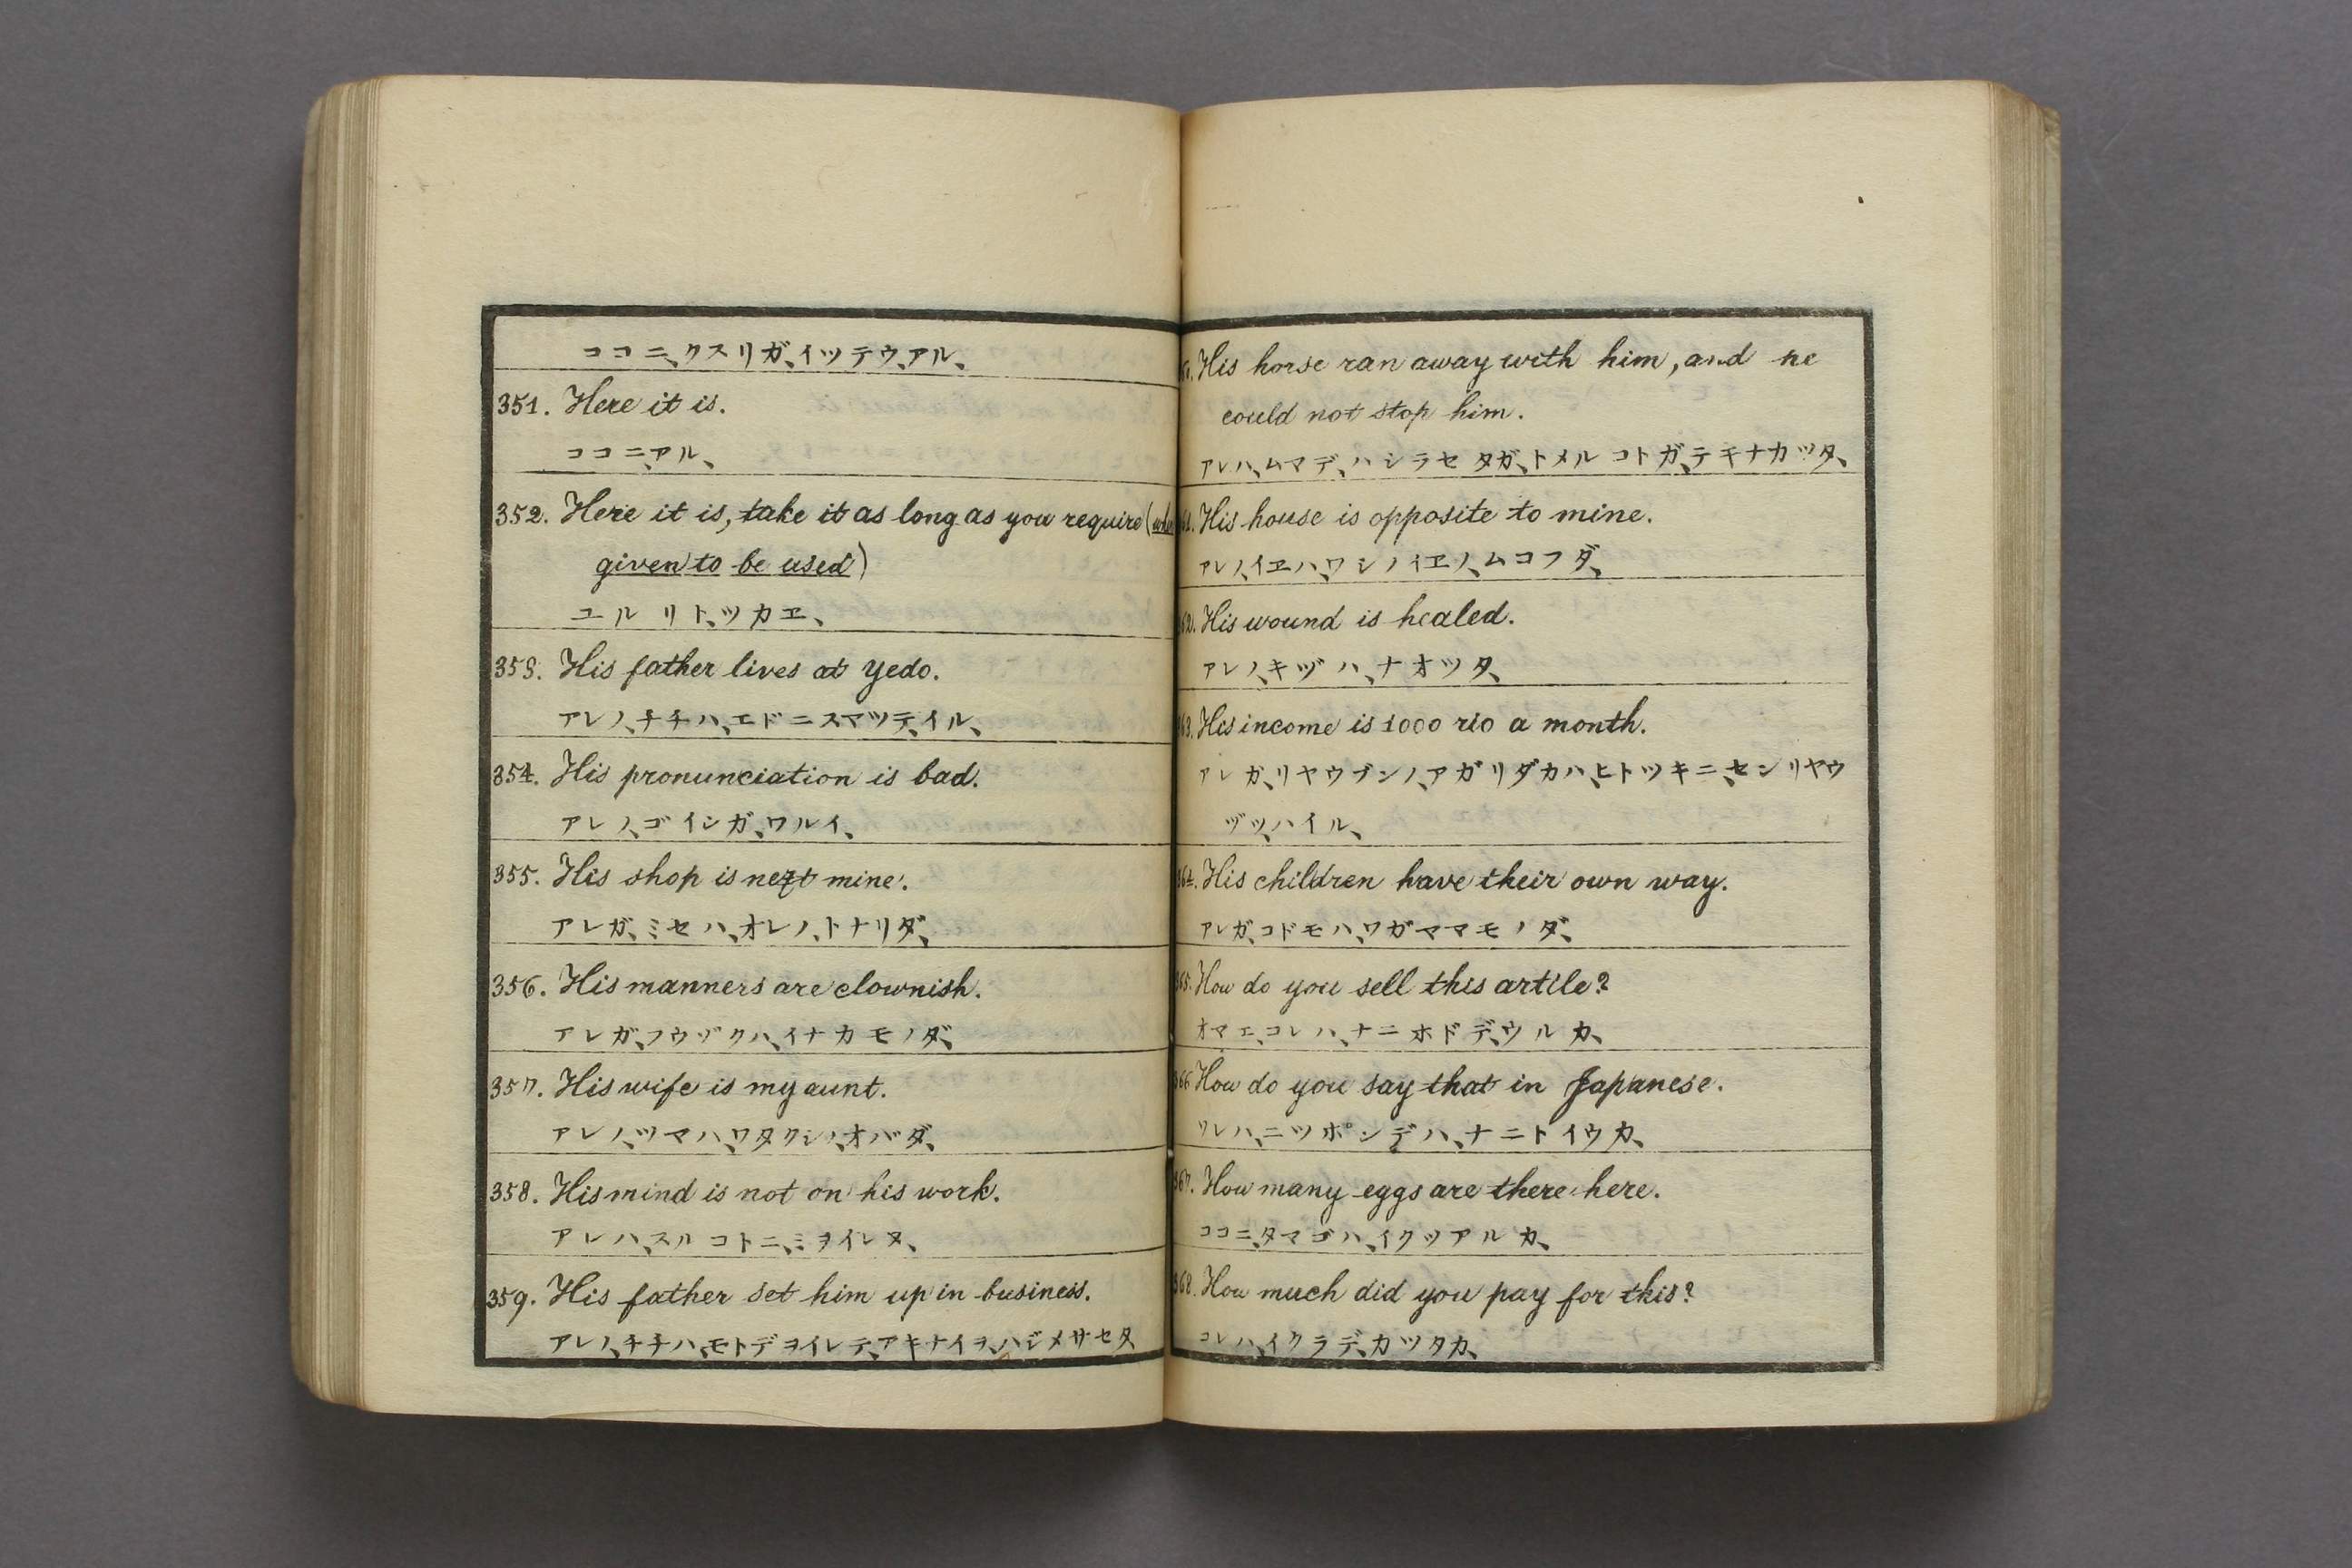 ココニ、クスリガ、イツテウ、アル、
351. Here it is.
ココニ、アル、
352. Here it is, take it as long as you require (
given to be used)
ユルリト、ツカヱ、
353. His father lives at Yedo.
アレノ、チチハ、エドニスマツテ、イル、
354. His pronunciation is bad.
アレノ、ゴインガ、ワルイ、
355. His shop is next mine.
アレガ、ミセハ、オレノ、トナリダ、
356. His manners are clownish.
アレガ、フウヅクハ、イナカモノダ、
357. His wife is my aunt.
アレノ、ツマハ、ワタクシノ、オバダ、
358. His mind is not on his work.
アレハ、スルコトニ、ミヲイレヌ、
359. His father set him up in business.
アレノ、チチハ、モトデヲイレテ、アキナイヲ、ハジメサセタ
His horse ran away with him, and he
could not stop him.
アレハ、ムマデ、ハシラセタガ、トメルコトガ、テキナカツタ、
His house is opposite to mine.
アレノ、イヱハ、ワシノイヱノ、ムコフダ、
His wound is healed.
アレノ、キヅハ、ナオツタ、
63. His income is 1000 rio a month.
アレガ、リヤウブンノ、アガリダカハ、ヒトツキニ、センリヤウ
ヅツ、ハイル、
64. His children have their own way.
アレガ、コドモハ、ワガママモノダ、
365. How do you sell this artile?
オマエ、コレハ、ナニホドデ、ウルカ、
366 How do you say that in Japanese.
ソレハ、ニツポンデハ、ナニトイウカ、
367. How many eggs are there here.
ココニ、タマゴハ、イクツアルカ、
368. How much did you pay for this?
コレハ、イクラデ、カツタカ、